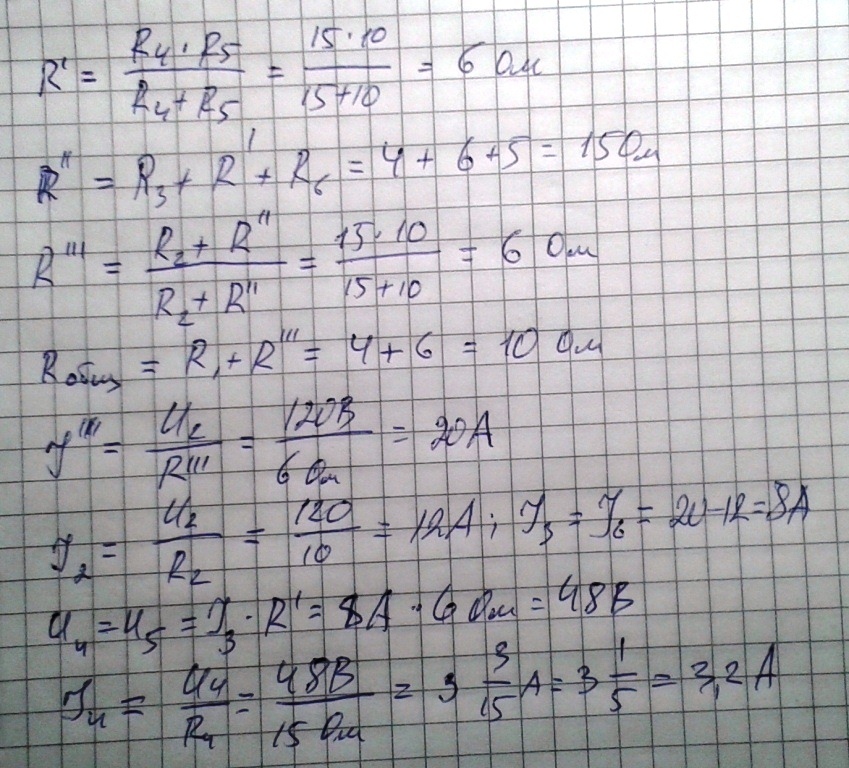 R' = (R₄ · R₅)/(R₄ + R₅) = (15 · 10)/(15 + 10) = 6 Ом
R'' = R₃ + R' + R₆ = 4 + 6 + 5 = 15 Ом
R''' = (R₂ + R'')/(R₂ + R'') = (15 · 10)/(15 + 10) = 6 Ом
Rобщ = R₁ + R''' = 4 + 6 = 10 Ом
J''' = U₂/R''' = 120В/6 Ом = 20А
J₂ = U₂/R₂ = 120/10 = 12А; J₃ = J₆ = 20-12=8А
U₄ = U₅ = J₃ · R' = 8А · 6 Ом = 48В
J₄ = U₄/R₄ = 48В/15 Ом = 3 3/15 А = 3 1/5 = 3,2 А